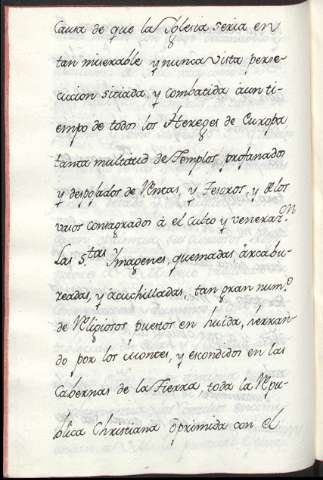 Causa de que la Yglesia seria en
tan miserable y nunca vista perse-
cucion sitiada, y combatida á un ti-
empo de todos los Hereges de Europa
tanta multitud de Templos profanados
y despojados de Rentas, y Tesoros, y de los
vasos consagrados á el culto y veneraz.on
Las S.tas Ymagenes quemadas árcabu-
ceadas, y ácuchilladas, tan gran num.o
de Religiosos puestos en huida, y érran-
do por los montes, y escondidos en las
Cabernas de la Tierra toda la Repu-
blica Christiana óprimida con el